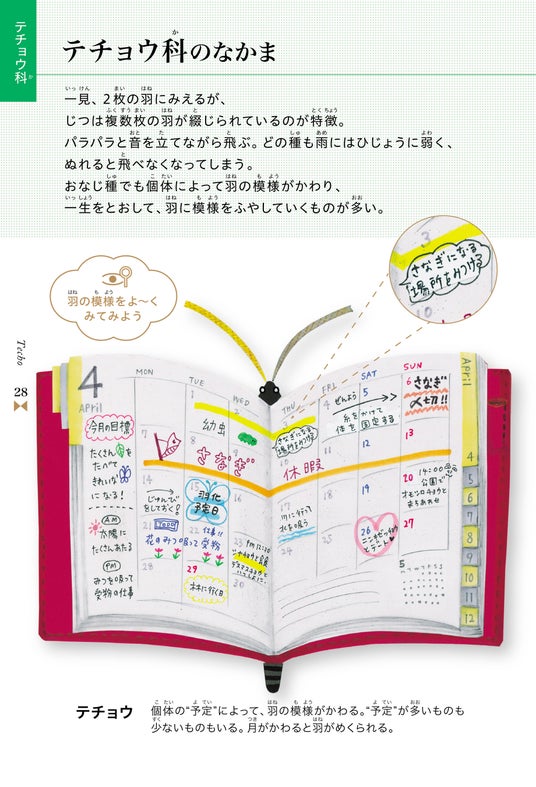 テチョウ科
テチョウ科のなかま
一見、2枚の羽にみえるが、
じつは複数枚の羽が綴じられているのが特徴。
パラパラと音を立てながら飛ぶ。どの種も雨にはひじょうに弱く、
ぬれると飛べなくなってしまう。
おなじ種でも個体によって羽の模様がかわり、
一生をとおして、羽に模様をふやしていくものが多い。
羽の模様をよ〜く
みてみよう
3
さなぎになる
場所をみつける
10
Techo
28
4
April
MON
TUE
WED
THU
FRI
SAT
SUN
April
今月の目標
たくさん
たべて
きれいな
になる!
AM
太陽に
たくさんあたる
PM
みつを吸って
受粉の仕事
1
2
幼虫
3
さなぎになる
場所をみつける
4
ぜんよう
5
糸をかけて
体を固定する
6
さなぎ
大切!!
7
8
さなぎ
9
10
休暇
11
12
13
14
じゅんび
をしておく!
15
羽化
予定日
16
17
川に行って
水を吸う
18
19
20
14:00
公園で
21
22
仕事!!
花のみつ吸って受粉
23
PM 12:00
24
25
26
27
28
29
30
5
M T W T F S S
4
5
6
7
8
9
10
11
12
テチョウ
個体の“予定”によって、羽の模様がかわる。“予定”が多いものも
少ないものもいる。月がかわると羽がめくられる。